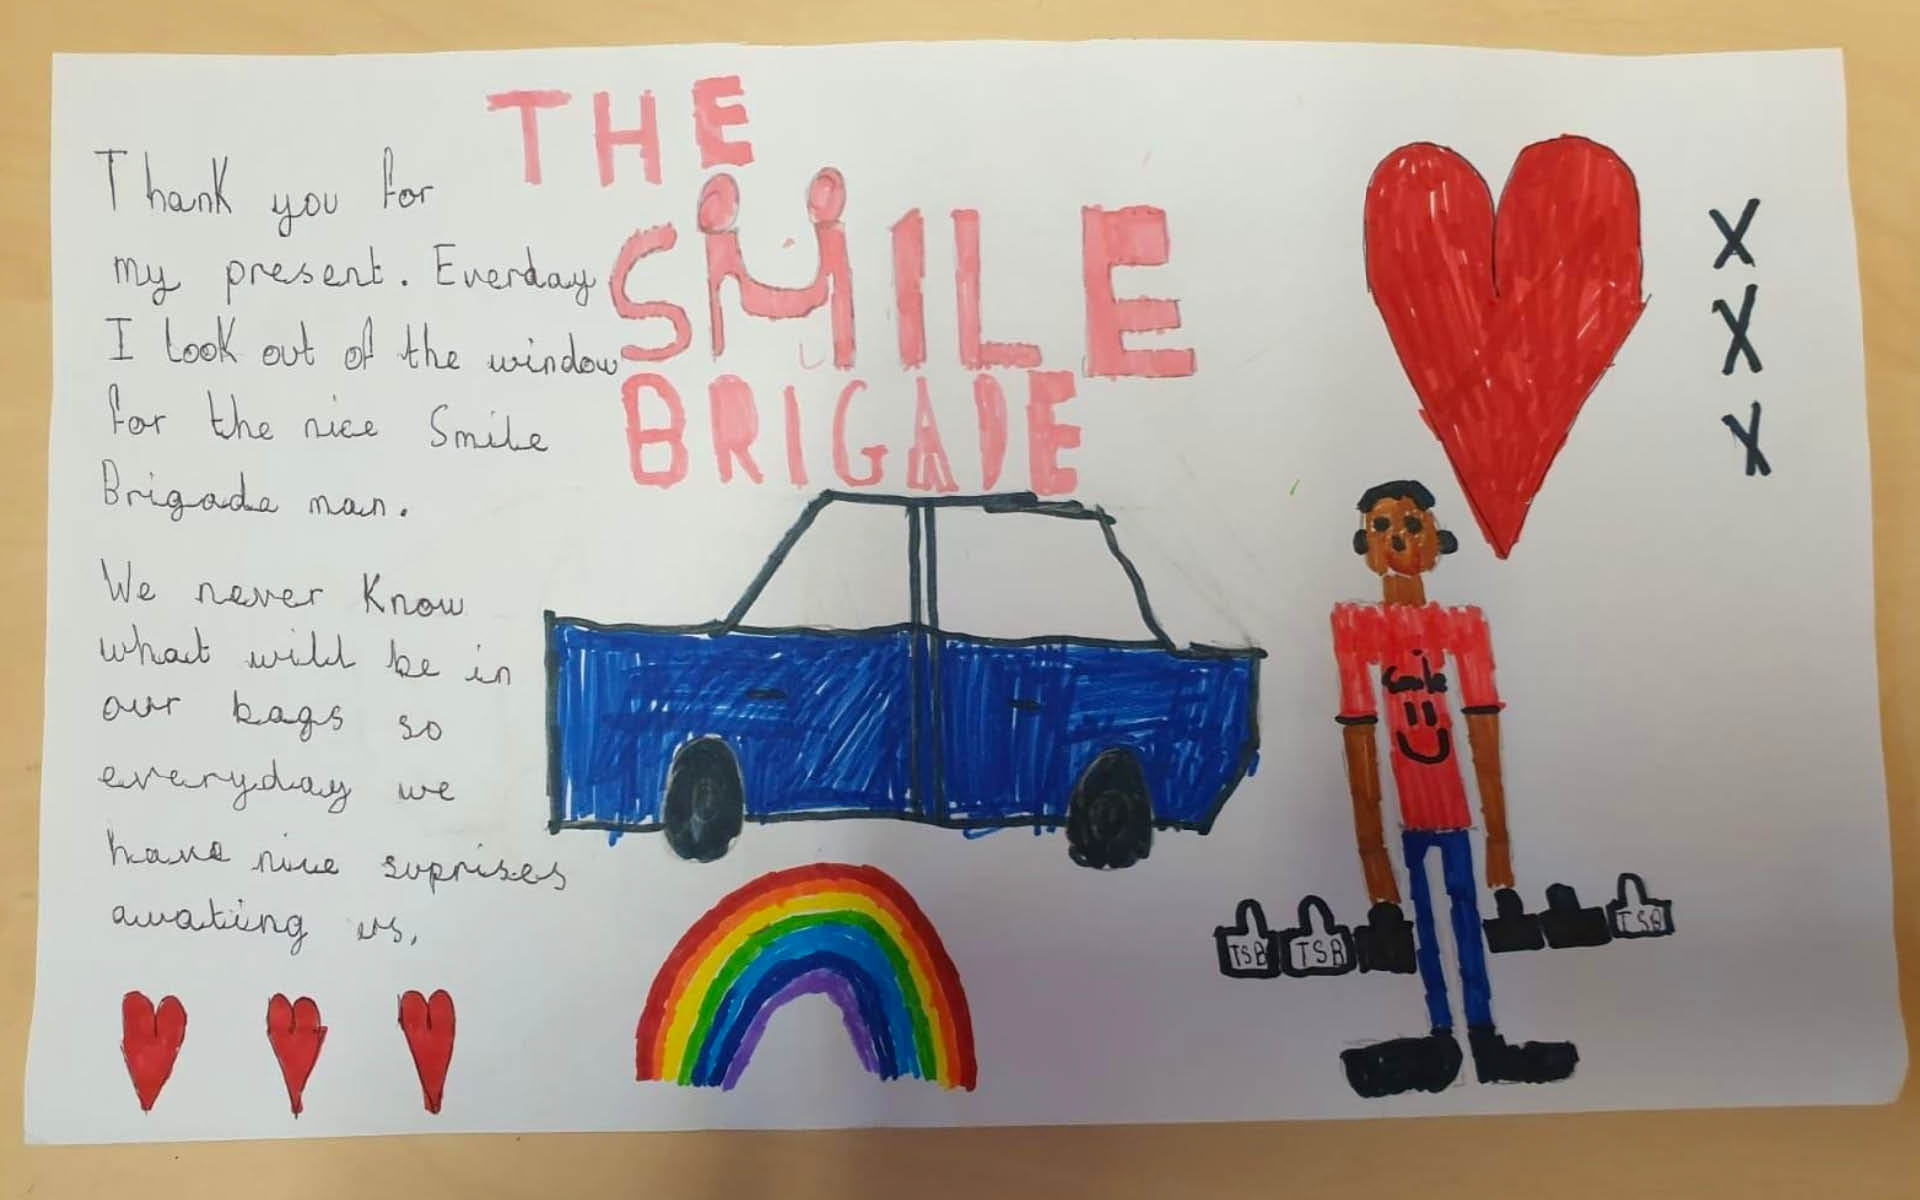 THE
SMILE
BRIGADE
Thank you for
my present. Everday
I look out of the window
for the nice Smile
Brigade man.
We never know
what will be in
our bags so
everyday we
have nice suprises
awating us,
X
X
X
Smile
TSB
TSB
TSB